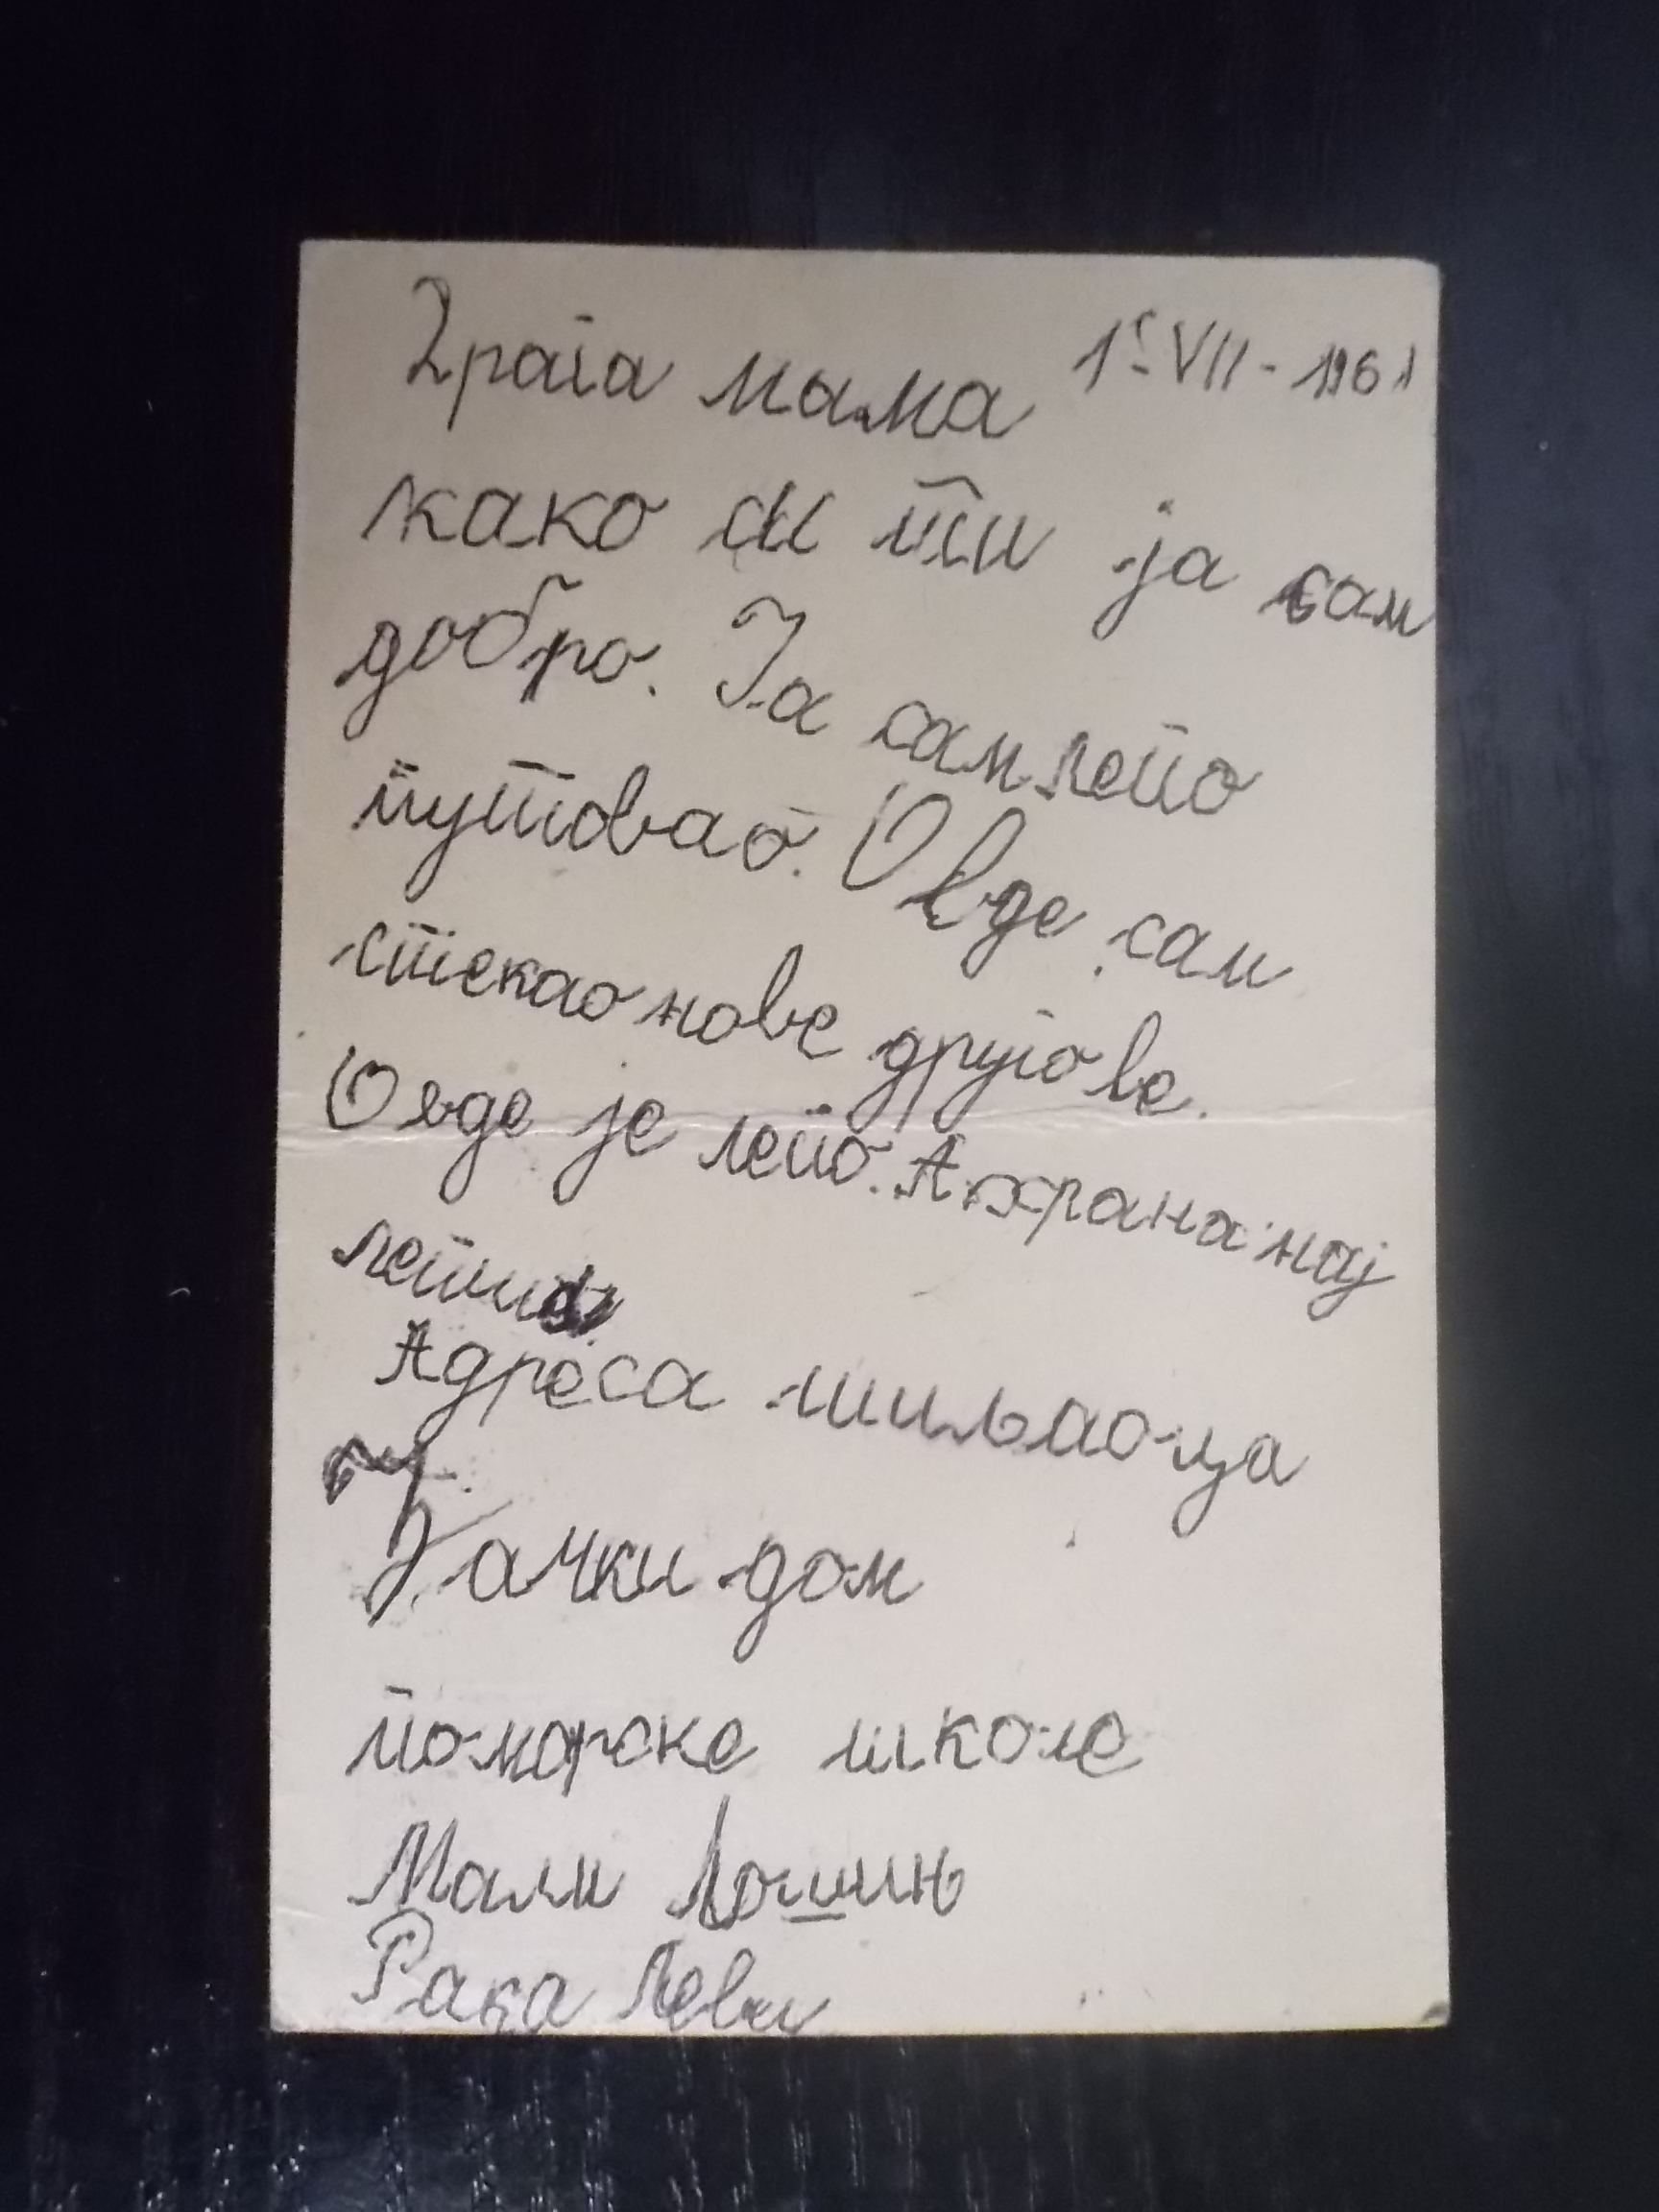 Драга мама 15 VII - 1961
како си ти ја сам
добро. Ја сам лепо
путовао. Овде сам
стекао нове другове.
Овде је лепо. А храна нај
лепша.
Адреса шиљаоца
Ђачки дом
поморске школе
Мали Лошињ
Рака Леви